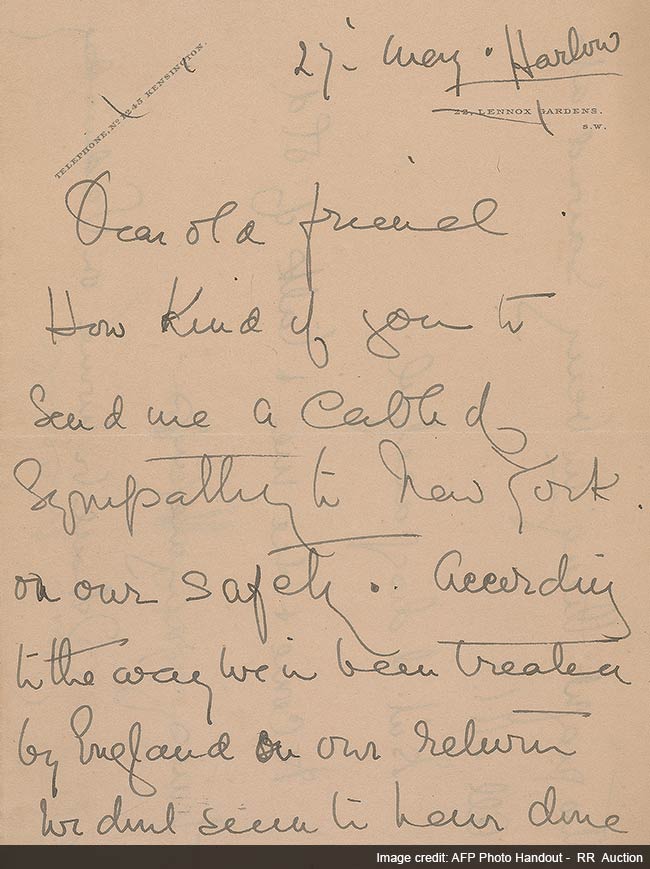 27- May. Harlow
TELEPHONE, No 1243 KENSINGTON.
22, LENNOX GARDENS.
S.W.
Dear old friend.
How Kind of you to
Send me a Cable of
Sympathy to New York.
on our safety.. According
to the way we've been treated
by England on our return
We didnt seem to have done
Image credit: AFP Photo Handout - RR Auction